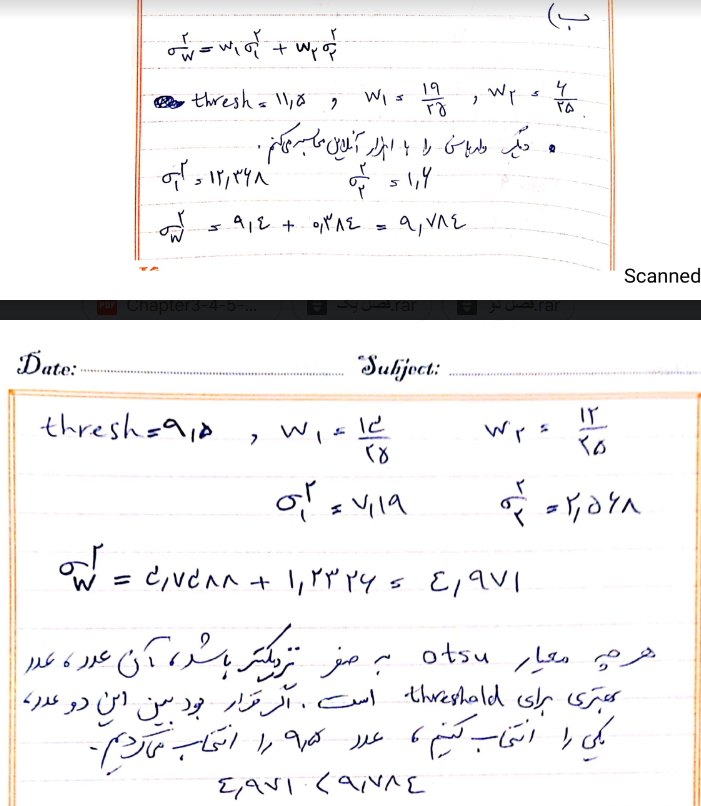 ب)
σ²_W = W₁σ₁² + W₂σ₂²
thresh = ۱۱,۵ , W₁ = ۱۹/۲۵ , W₂ = ۶/۲۵
• دیگر واریانس را با ابزار آنلاین محاسبه میکنم.
σ₁² = ۱۲,۳۶۸ σ₂² = ۱,۶
σ²_W = ۹,٤ + ۰,۳۸٤ = ۹,۷۸٤
Scanned
Chapter3-4-5-... .rar .rar
Date: Subject:
thresh = ۹,۵ , W₁ = ۱۳/۲۵ W₂ = ۱۲/۲۵
σ₁² = ۷,۱۹ σ₂² = ۲,۵۶۸
σ²_W = ۳,۷۳۸۸ + ۱,۲۳۲۶ = ٤,۹۷۱
هر چه معیار otsu به صفر نزدیکتر باشد، آن عدد، عدد
بهتری برای threshold است. اگر قرار بود بین این دو عدد،
یکی را انتخاب کنیم، عدد ۹,۵ را انتخاب میکردیم.
٤,۹۷۱ < ۹,۷۸٤